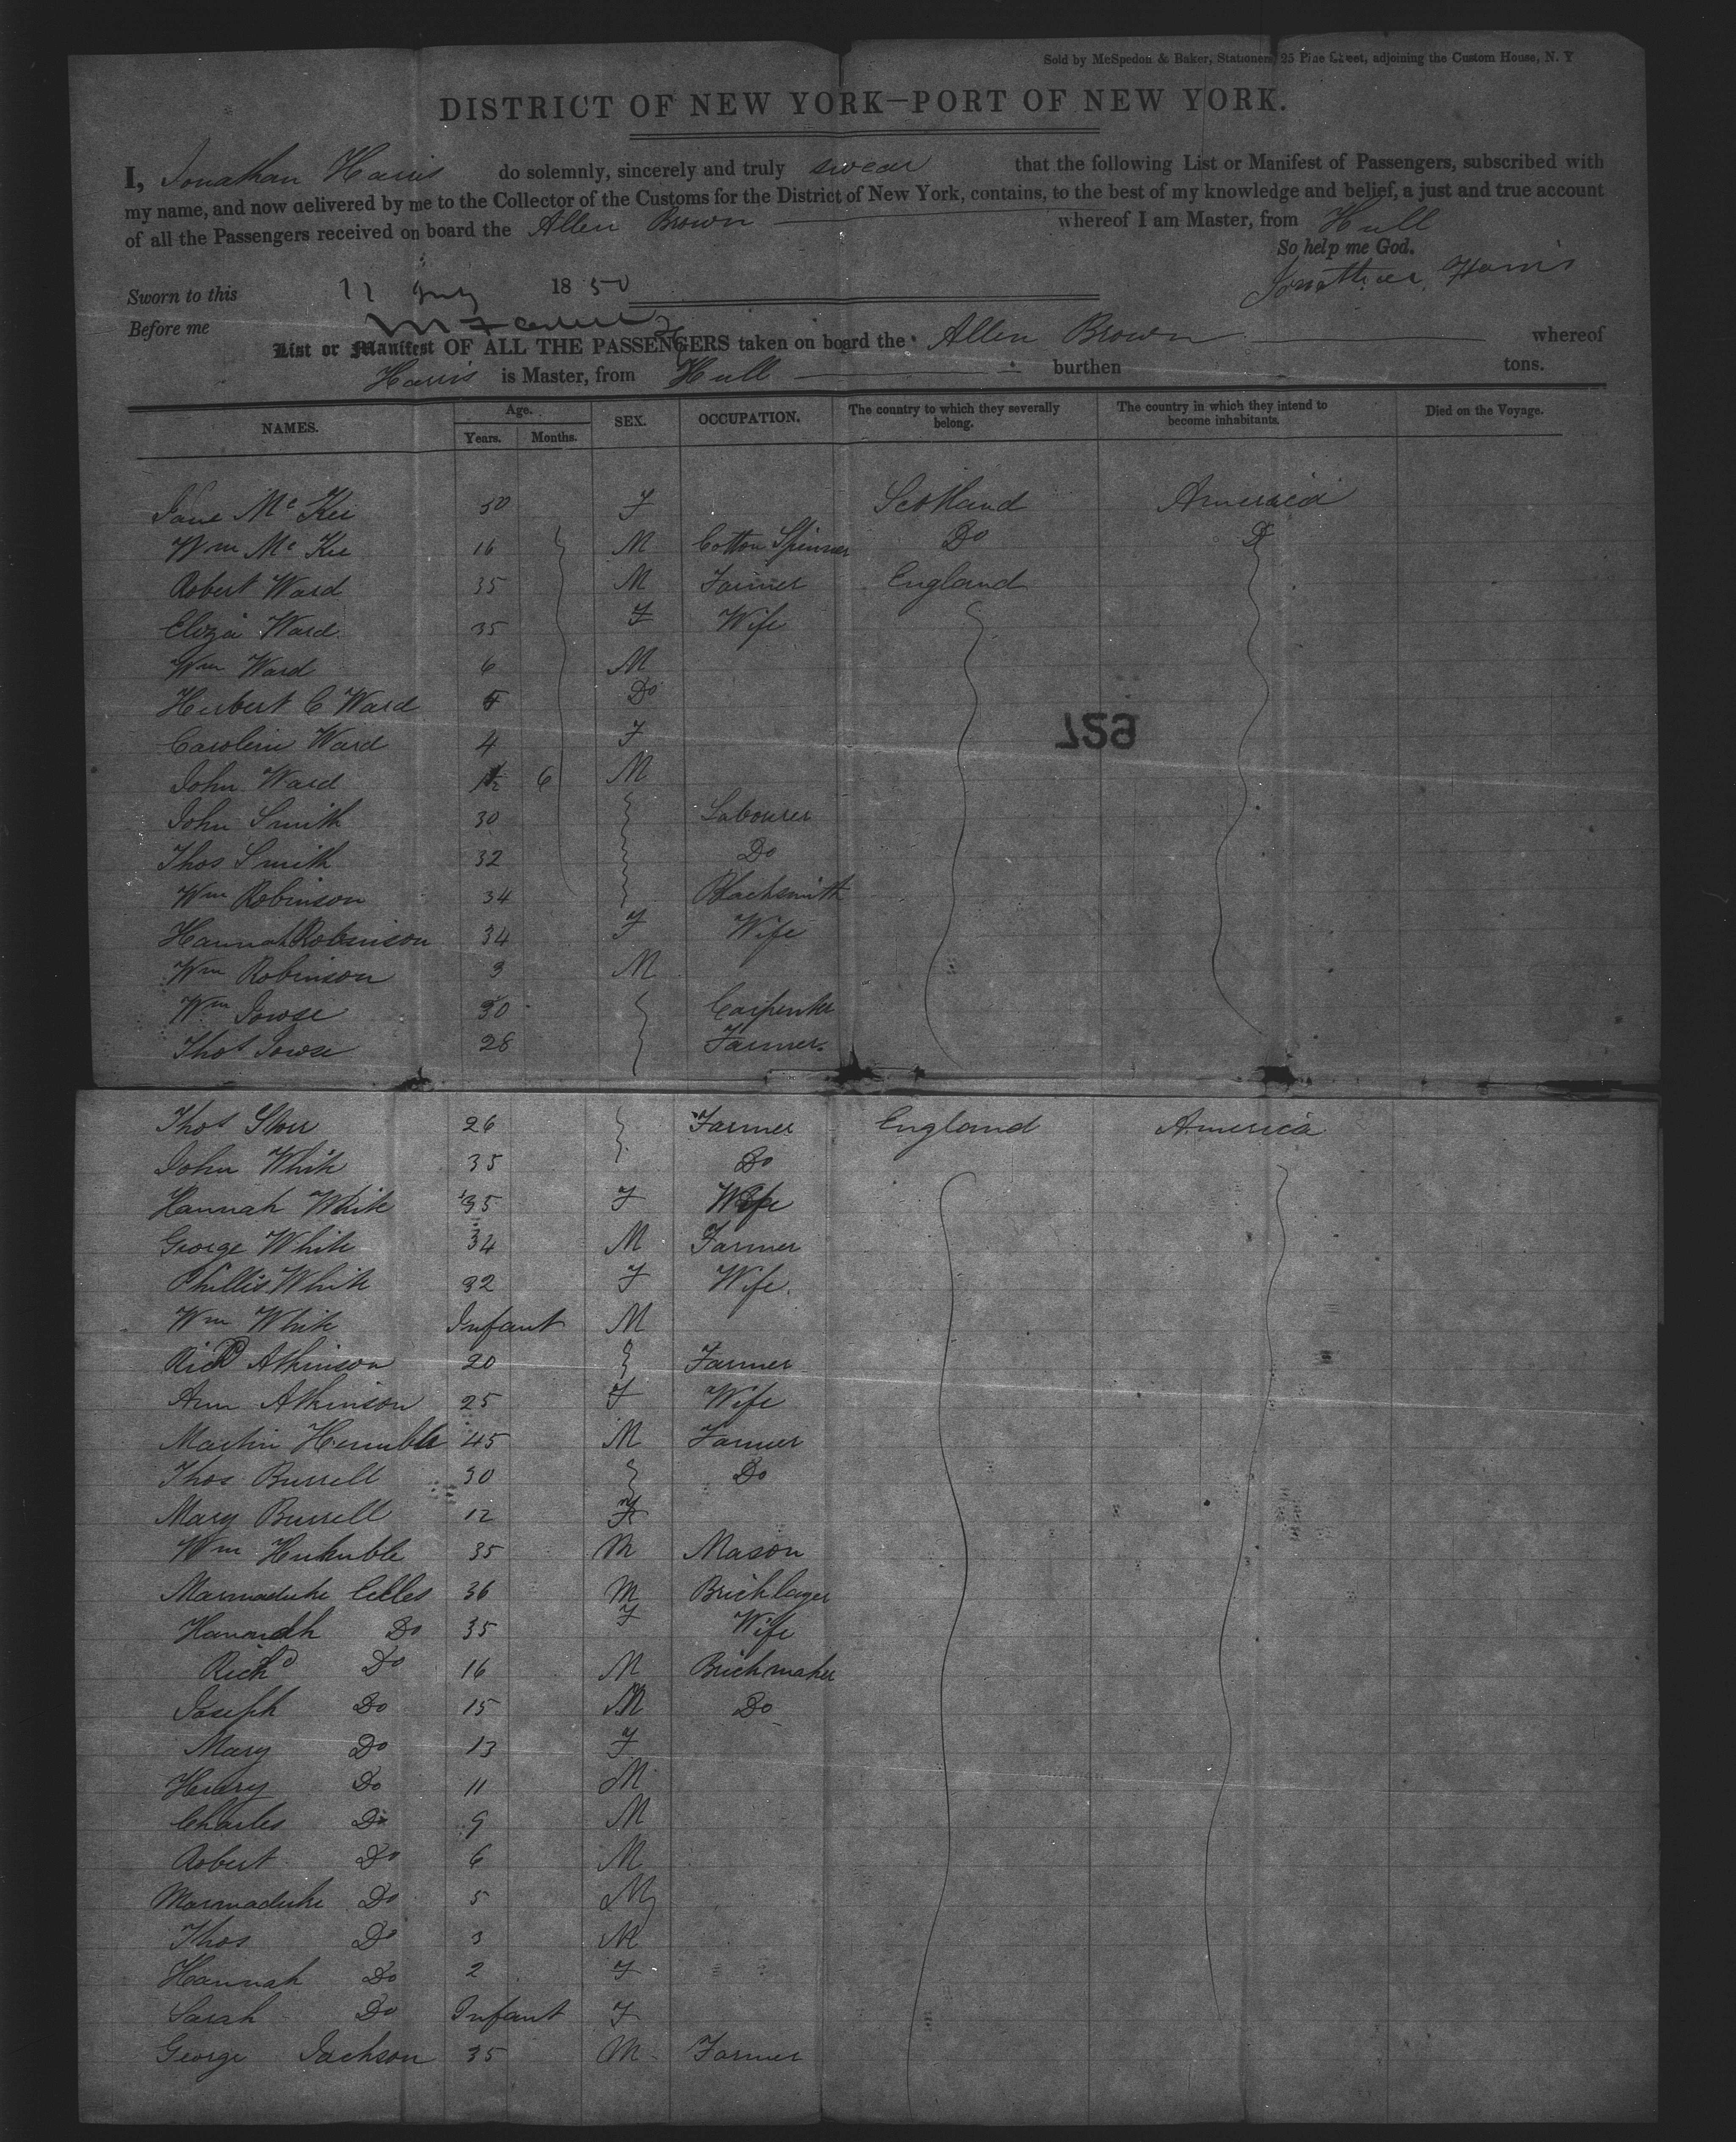 Sold by McSpedon & Baker, Stationers, 25 Pine Street, adjoining the Custom House, N. Y
DISTRICT OF NEW YORK—PORT OF NEW YORK.
I, Jonathan Harris do solemnly, sincerely and truly swear that the following List or Manifest of Passengers, subscribed with
my name, and now delivered by me to the Collector of the Customs for the District of New York, contains, to the best of my knowledge and belief, a just and true account
of all the Passengers received on board the Allen Brown whereof I am Master, from Hull
So help me God.
Jonathan Harris
Sworn to this 11 July 1850
Before me
List or Manifest OF ALL THE PASSENGERS taken on board the Allen Brown whereof
Harris is Master, from Hull burthen tons.
NAMES. Age. Years. Months. SEX. OCCUPATION. The country to which they severally belong. The country in which they intend to become inhabitants. Died on the Voyage.
Jane Mc Kee 50 F Scotland America
Wm Mc Kee 16 M Cotton Spinner Do Do
Robert Ward 35 M Farmer England
Eliza Ward 35 F Wife
Wm Ward 6 M
Herbert C Ward 5 Do
Caroline Ward 4 F
627
John Ward 6 M
John Smith 30 Labourer
Thos Smith 32 Do
Wm Robinson 34 Blacksmith
Hannah Robinson 34 F Wife
Wm Robinson 3 M
Wm Jowse 30 Carpenter
Thos Jowse 28 Farmer
Thos Storr 26 Farmer England America
John White 35 Do
Hannah White 35 F Wife
George White 34 M Farmer
Phillis White 32 F Wife
Wm White Infant M
Richd Atkinson 20 Farmer
Ann Atkinson 25 F Wife
Martin Humble 45 M Farmer
Thos Burrell 30 Do
Mary Burrell 12 F
Wm 35 M Mason
Marmaduke Celles 36 M Bricklayer
Hannah Do 35 F Wife
Richd Do 16 M Brickmaker
Joseph Do 15 M Do
Mary Do 13 F
Henry Do 11 M
Charles Do 9 M
Robert Do 6 M
Marmaduke Do 5 M
Thos Do 3 M
Hannah Do 2 F
Sarah Do Infant F
George Jackson 35 M Farmer